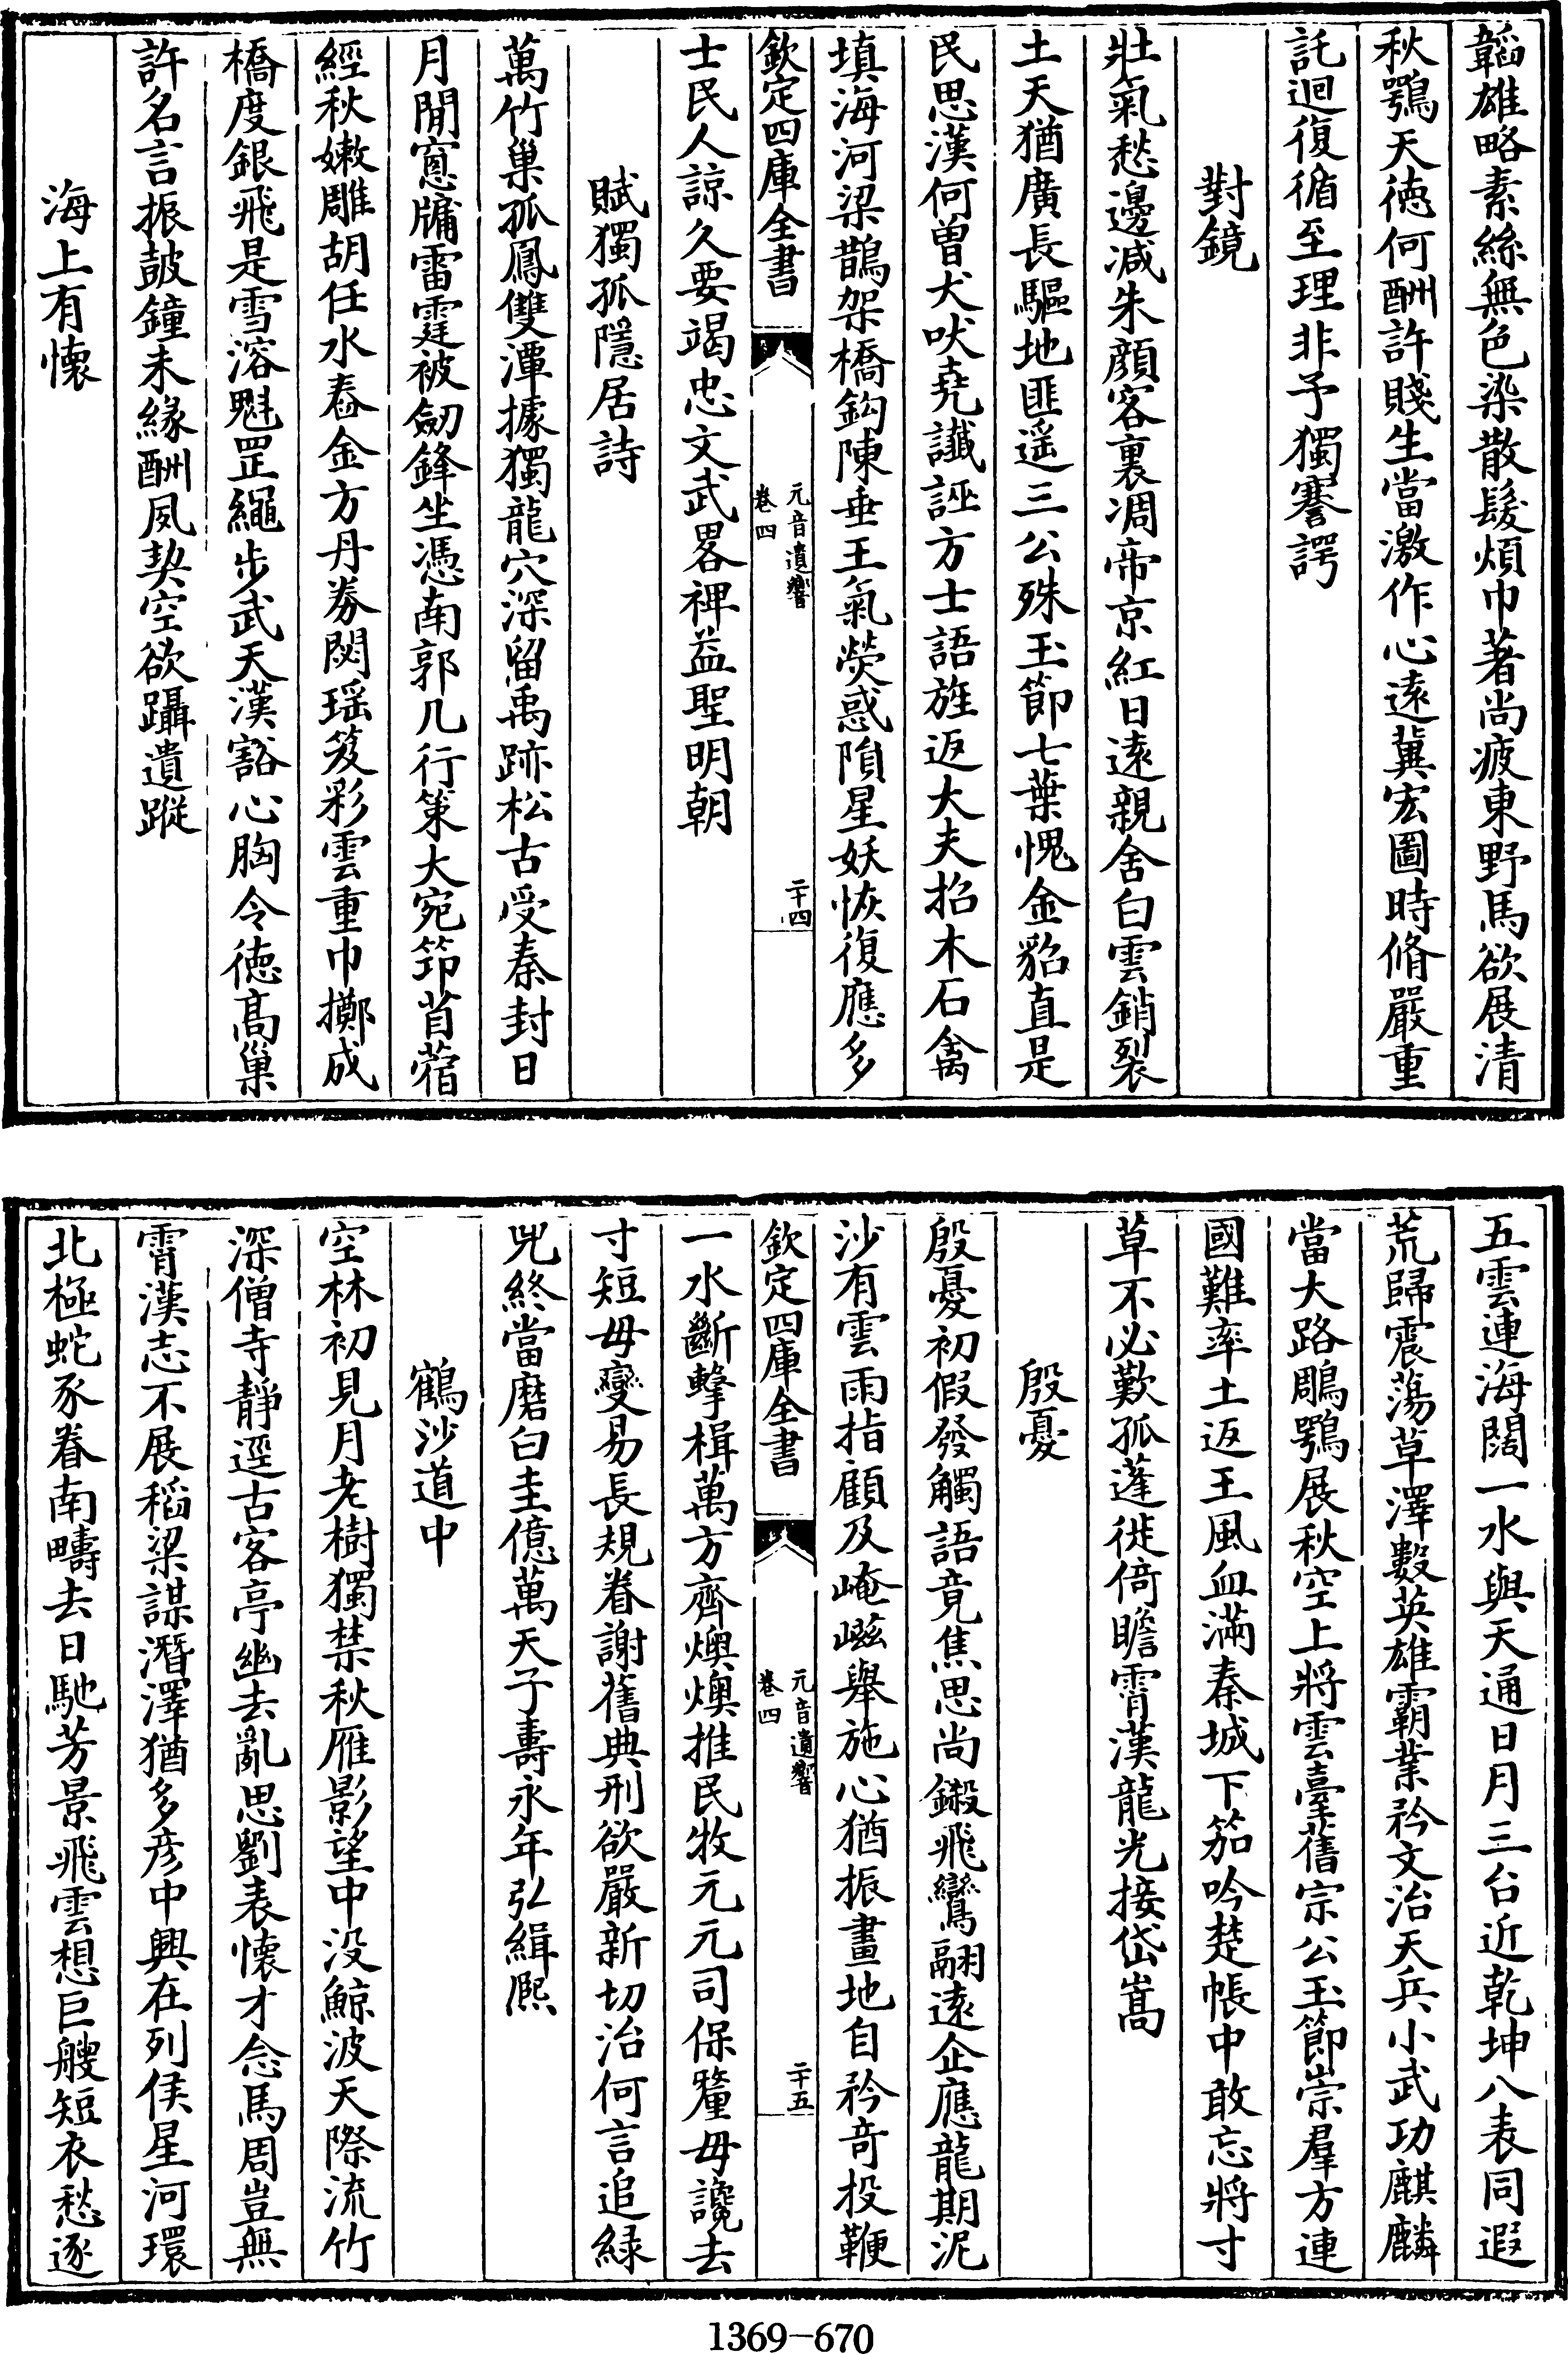 韜雄略素絲無色染散髮煩巾著尚疲東野馬欲展清
秋鶚天徳何酬許賤生當激作心逺冀宏圖時脩嚴重
託迴復循至理非予獨謇諤
對鏡
壯氣愁邊減朱顔客裏凋帝京紅日逺親舍白雲銷裂
土天猶廣長驅地匪遥三公殊玉節七葉愧金貂直是
民思漢何曾犬吠堯讖誣方士語旌返大夫招木石禽
填海河梁鵲架橋鈎陳垂王氣熒惑隕星妖恢復應多
欽定四庫全書
元音遺響
卷四
二十四
士民人諒久要竭忠文武畧裨益聖明朝
賦獨孤隱居詩
萬竹巢孤鳳雙潭據獨龍穴深留禹跡松古受秦封日
月閒窻牖雷霆被劒鋒坐憑南郭几行策大宛笻苜蓿
經秋嫩雕胡任水舂金方丹劵閟瑶笈彩雲重巾擲成
橋度銀飛是雪溶魁罡繩步武天漢豁心胸令徳髙巢
許名言振鼓鐘未緣酬夙契空欲躡遺蹤
海上有懷
五雲連海闊一水與天通日月三台近乾坤八表同遐
荒歸震蕩草澤數英雄霸業矜文治天兵小武功麒麟
當大路鵰鶚展秋空上將雲臺舊宗公玉節崇羣方連
國難率土返王風血滿秦城下笳吟楚帳中敢忘將寸
草不必歎孤蓬徙倚瞻霄漢龍光接岱嵩
殷憂
殷憂初假發觸語竟焦思尚鎩飛鸞翮逺企應龍期泥
沙有雲雨指顧及崦嵫舉施心猶振畫地自矜竒投鞭
欽定四庫全書
元音遺響
卷四
二十五
一水斷擊楫萬方齊燠燠推民牧元元司保釐毋讒去
寸短毋變易長規眷謝舊典刑欲嚴新切治何言追緑
兕終當磨白圭億萬天子夀永年弘緝熈
鶴沙道中
空林初見月老樹獨禁秋雁影望中没鯨波天際流竹
深僧寺靜逕古客亭幽去亂思劉表懷才念馬周豈無
霄漢志不展稻粱謀潛澤猶多彦中興在列侯星河環
北極蛇豕眷南疇去日馳芳景飛雲想巨艘短衣愁逐
1369-670